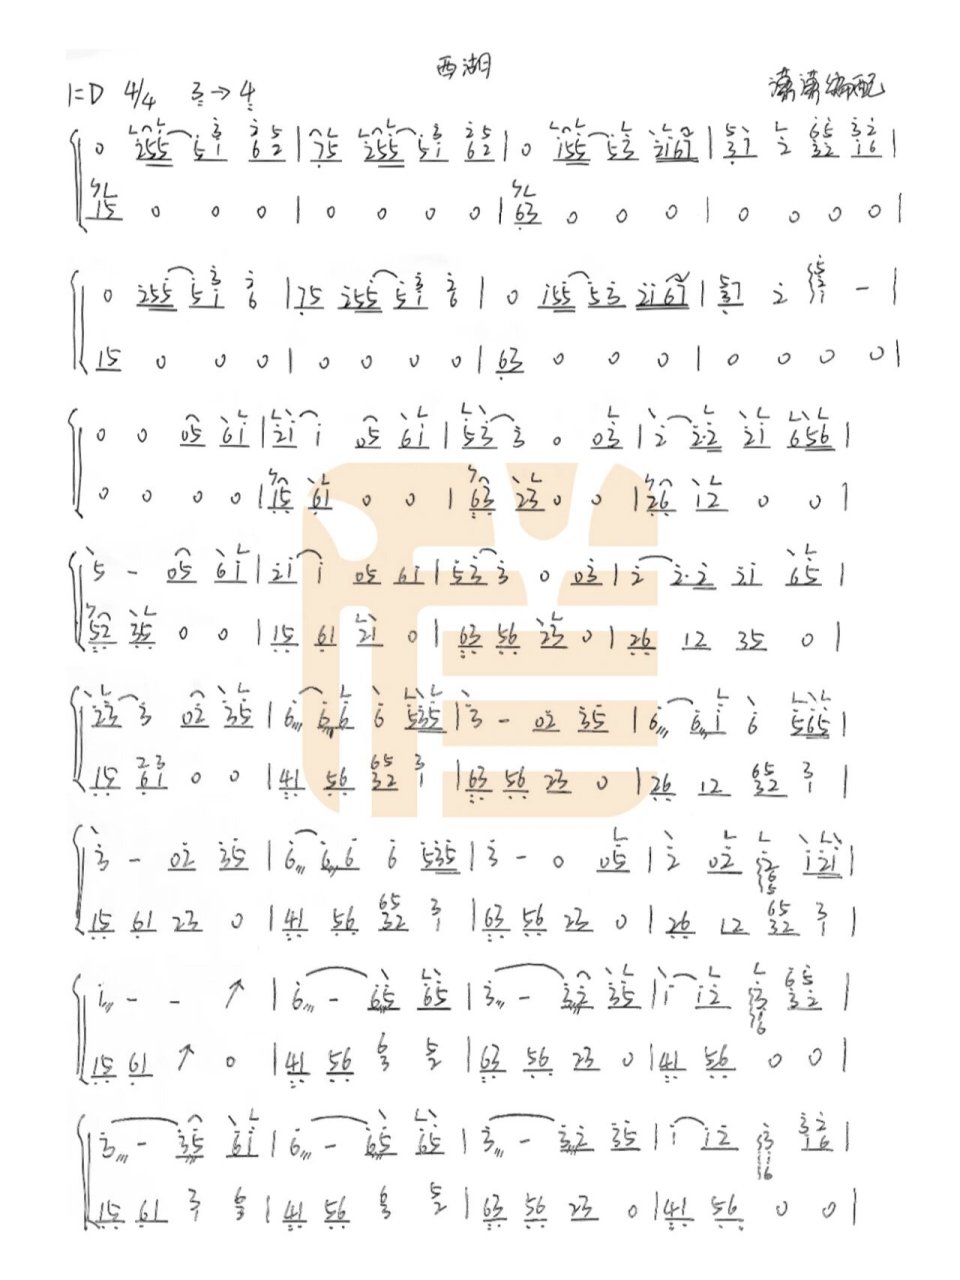 西湖
1=D 4/4 3→4 潇潇编配
0 255 51 62 | 75 255 51 62 | 0 155 53 2167 | 37 2 32 16 |
15 0 0 0 | 0 0 0 0 | 63 0 0 0 | 0 0 0 0 |
0 255 51 6 | 75 255 51 6 | 0 155 53 2167 | 37 2 - |
15 0 0 0 | 0 0 0 0 | 63 0 0 0 | 0 0 0 0 |
0 0 05 61 | 21 1 05 61 | 53 3 0 03 | 2 2·2 21 656 |
0 0 0 0 | 15 61 0 0 | 63 23 0 0 | 26 12 0 0 |
5 - 05 61 | 21 1 05 61 | 53 3 0 03 | 2 2·2 21 65 |
52 35 0 0 | 15 61 21 0 | 63 56 23 0 | 26 12 35 0 |
23 3 02 35 | 6 66 6 535 | 3 - 02 35 | 6 61 6 565 |
15 61 0 0 | 41 56 32 1 | 63 56 23 0 | 26 12 32 1 |
3 - 02 35 | 6 66 6 535 | 3 - 0 05 | 2 02 2 121 |
15 61 23 0 | 41 56 32 1 | 63 56 23 0 | 26 12 32 1 |
1 - - ↗ | 6 - 65 65 | 3 - 32 35 | 1 12 3 32 |
15 61 ↗ 0 | 41 56 3 2 | 63 56 23 0 | 41 56 0 0 |
3 - 35 61 | 6 - 65 65 | 3 - 32 35 | 1 12 3 16 |
15 61 | 41 56 2 | 63 56 23 0 | 41 56 0 0 |